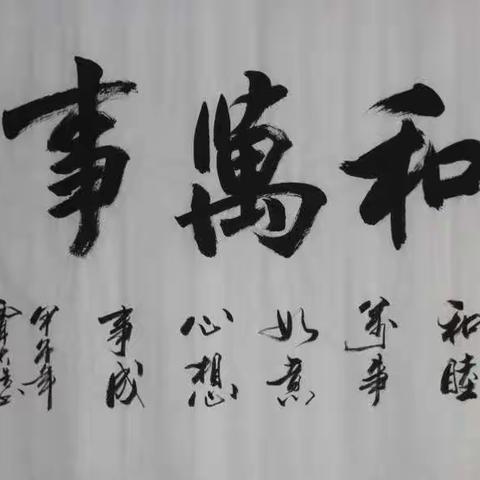 和萬事
和睦
萬事
如意
心想
事成
甲午年